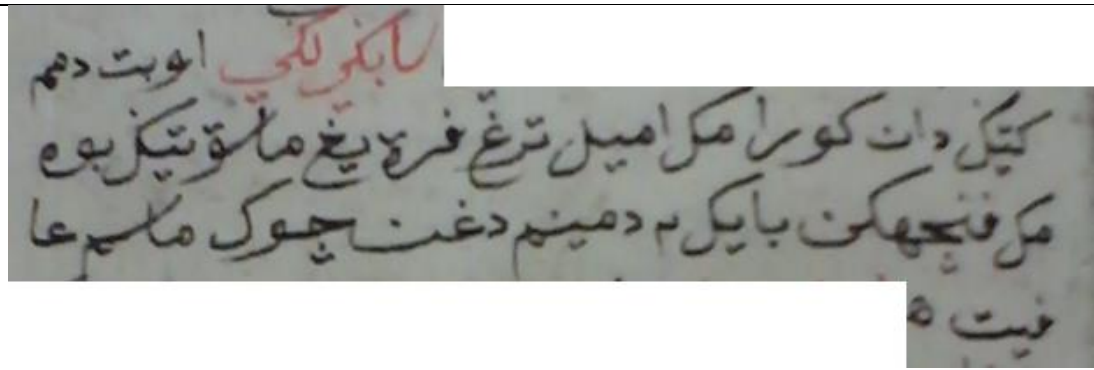 سابكي لكي اوبت دمم
كتيك دان كورا مك امبل ترغ فرة يغ ماسق تيك بوه
مك فچهكن بايك٢ دمينم دغن چوك ماسم عا
فيت ه